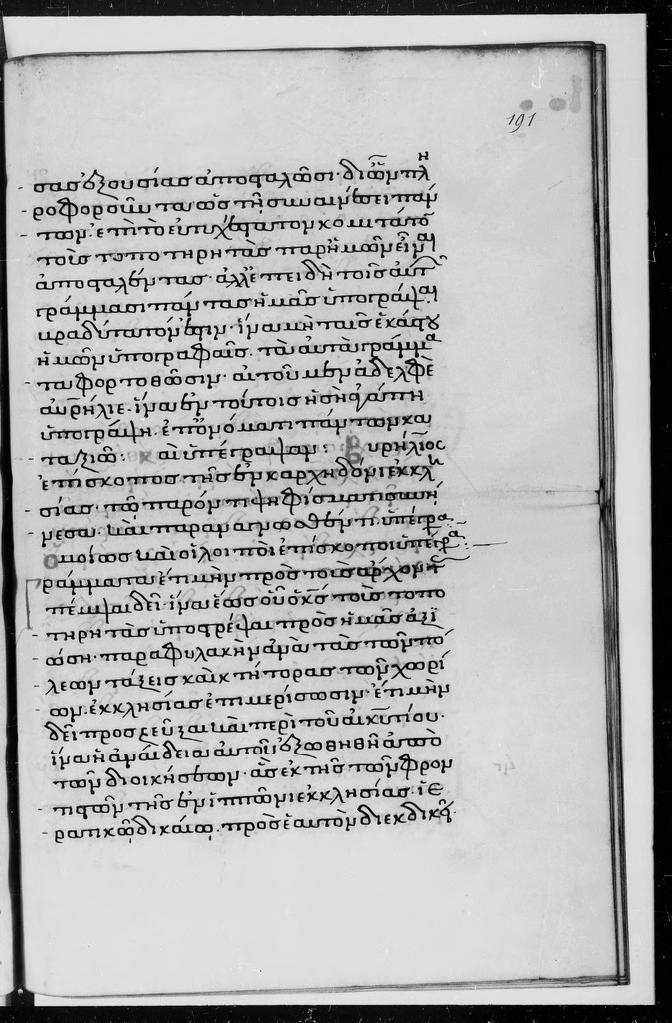 191
σας ἐξουσίας ἀποφαλῶσι· δι' ὧν πλη
ροφοροῦνται ὡς τῇ συναινέσει πάν
των. ἐπὶ τὸ εὐτυχέστατον κομιτάτον
τοῖς τοποτηρητὰς παρ' ἡμῶν εἶναι
ἀποσταλέντας. ἀλλ' ἐπειδὴ τοῖς αὐτ
γράμμασι πάντας ἡμᾶς ὑπογράψαι
βραδύτατόν ἐστιν· ἵνα μὴ ταῖς ἑκάστου
ἡμῶν ὑπογραφαῖς. τὰ αὐτὰ γράμμα
τα φορτοθῶσιν. αἰτοῦμεν ἀδελφὲ
αὐρήλιε. ἵνα ἐν τούτοις ἡ σὴ ἀγάπη
ὑπογράψῃ. ἐπ' ὀνόματι πάντων κα
ταξιῶ: καὶ ὑπέγραψαν: αυρήλιος
ἐπίσκοπος τῆς ἐν καρχηδόνι ἐκκλη
σίας. τῷ παρόντι ψηφίσματι συνή
νεσα. καὶ παραναγνωσθέντι. ὑπέγρα
ὁμοίως καὶ οἱ λοιποὶ ἐπίσκοποι ὑπέγρα
γράμματα ἐπὶ μὴν πρὸς τοὺς ἄρχοντας
πέμψαι δεῖ. ἵνα ἕως οὗ ὁ κς τοὺς τοπο
τηρητὰς ὑποστρέψαι πρὸς ἡμᾶς ἀξι
ώσῃ. παραφυλακὴν ἀνὰ τὰς τῶν πό
λεων τάξεις καὶ κτήτορας τῶν χωρί
ων. ἐκκλησίας ἐπιμερίσωσιν. ἔτι μὴν
δεῖ προσζεῦξαι καὶ περὶ τοῦ αἰκυτίου.
ἵνα ἡ ἀναίδεια αὐτοῦ ἐξωθηθῇ ἀπὸ
τῶν διοικήσεων. ἃς ἐκ τῆς τῶν φρον
τιστῶν τῆς ἐν ἱππῶνι ἐκκλησίας. ἱε
ρατικῷ δικαίῳ. πρὸς ἑαυτὸν διεκδικῇ.